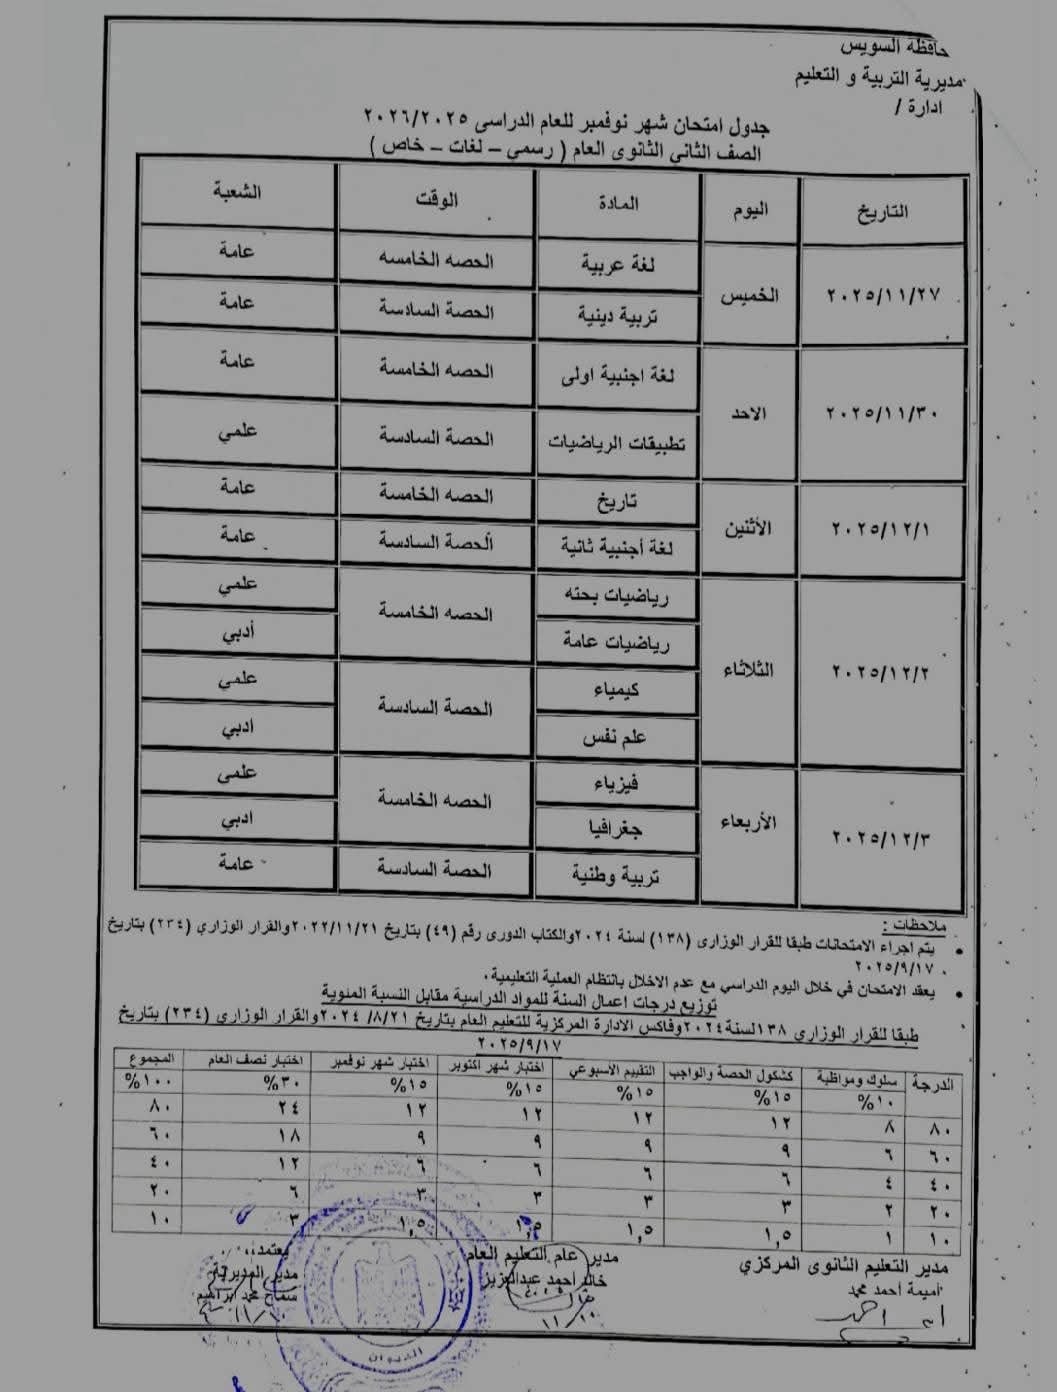 حافظة السويس
مديرية التربية و التعليم
ادارة /
جدول امتحان شهر نوفمبر للعام الدراسى ٢٠٢٦/٢٠٢٥
الصف الثاني الثانوى العام ( رسمي – لغات – خاص )
التاريخ اليوم المادة الوقت الشعبة
٢٠٢٥/١١/٢٧ الخميس لغة عربية الحصه الخامسه عامة
تربية دينية الحصة السادسة عامة
٢٠٢٥/١١/٣٠ الاحد لغة اجنبية اولى الحصه الخامسة عامة
تطبيقات الرياضيات الحصة السادسة علمي
٢٠٢٥/١٢/١ الأثنين تاريخ الحصه الخامسة عامة
لغة أجنبية ثانية الحصة السادسة عامة
٢٠٢٥/١٢/٢ الثلاثاء رياضيات بحته الحصه الخامسة علمي
رياضيات عامة أدبي
كيمياء الحصة السادسة علمي
علم نفس ادبي
٢٠٢٥/١٢/٣ الأربعاء فيزياء الحصه الخامسة علمي
جغرافيا ادبي
تربية وطنية الحصة السادسة عامة
ملاحظات :
• يتم اجراء الامتحانات طبقا للقرار الوزارى (١٣٨) لسنة ٢٠٢٤والكتاب الدورى رقم (٤٩) بتاريخ ٢٠٢٢/١١/٢١والقرار الوزاري (٢٣٤) بتاريخ
٢٠٢٥/٩/١٧ .
• يعقد الامتحان في خلال اليوم الدراسي مع عدم الاخلال بانتظام العملية التعليمية.
توزيع درجات اعمال السنة للمواد الدراسية مقابل النسبة المئوية
طبقا للقرار الوزاري ١٣٨لسنة٢٠٢٤وفاكس الادارة المركزية للتعليم العام بتاريخ ٢٠٢٤/٨/٢١والقرار الوزاري (٢٣٤) بتاريخ
٢٠٢٥/٩/١٧
الدرجة سلوك ومواظبة كشكول الحصة والواجب التقييم الاسبوعي اختبار شهر اكتوبر اختبار شهر نوفمبر اختبار نصف العام المجموع
١٠% ١٥% ١٥% ١٥% ١٥% ٣٠% ١٠٠%
٨٠ ٨ ١٢ ١٢ ١٢ ١٢ ٢٤ ٨٠
٦٠ ٦ ٩ ٩ ٩ ٩ ١٨ ٦٠
٤٠ ٤ ٦ ٦ ٦ ٦ ١٢ ٤٠
٢٠ ٢ ٣ ٣ ٣ ٣ ٦ ٢٠
١٠ ١ ١,٥ ١,٥ ١,٥ ١,٥ ٣ ١٠
مدير التعليم الثانوى المركزي مدير عام التعليم العام يعتمد،،،
أميمة أحمد محمد خالد احمد عبدالعزيز مدير المديرية
سماح محمد ابراهيم
الديوان